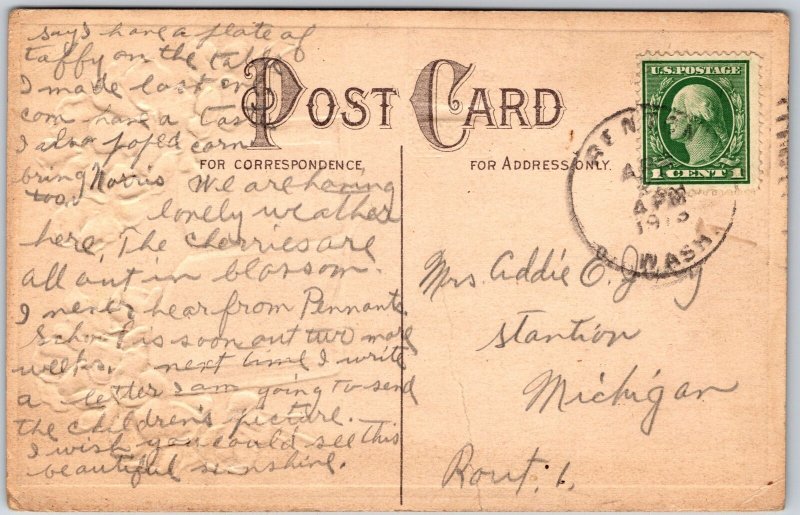 say I have a plate of
taffy on the table
I made last
com have a tas
I also poped corn
bring Norris
too.
We are having
lonely weather
here, The cherries are
all out in blossom.
I never hear from Pennants
School is soon out two more
weeks. next time I write
a letter I am going to send
the children's picture.
I wish you could see this
beautiful sunshine.
POST CARD
FOR CORRESPONDENCE
FOR ADDRESS ONLY.
U.S. POSTAGE
1 CENT 1
RENTON
4 PM
WASH.
Mrs. Addie E.
Stantion
Michigan
Rout. 1.